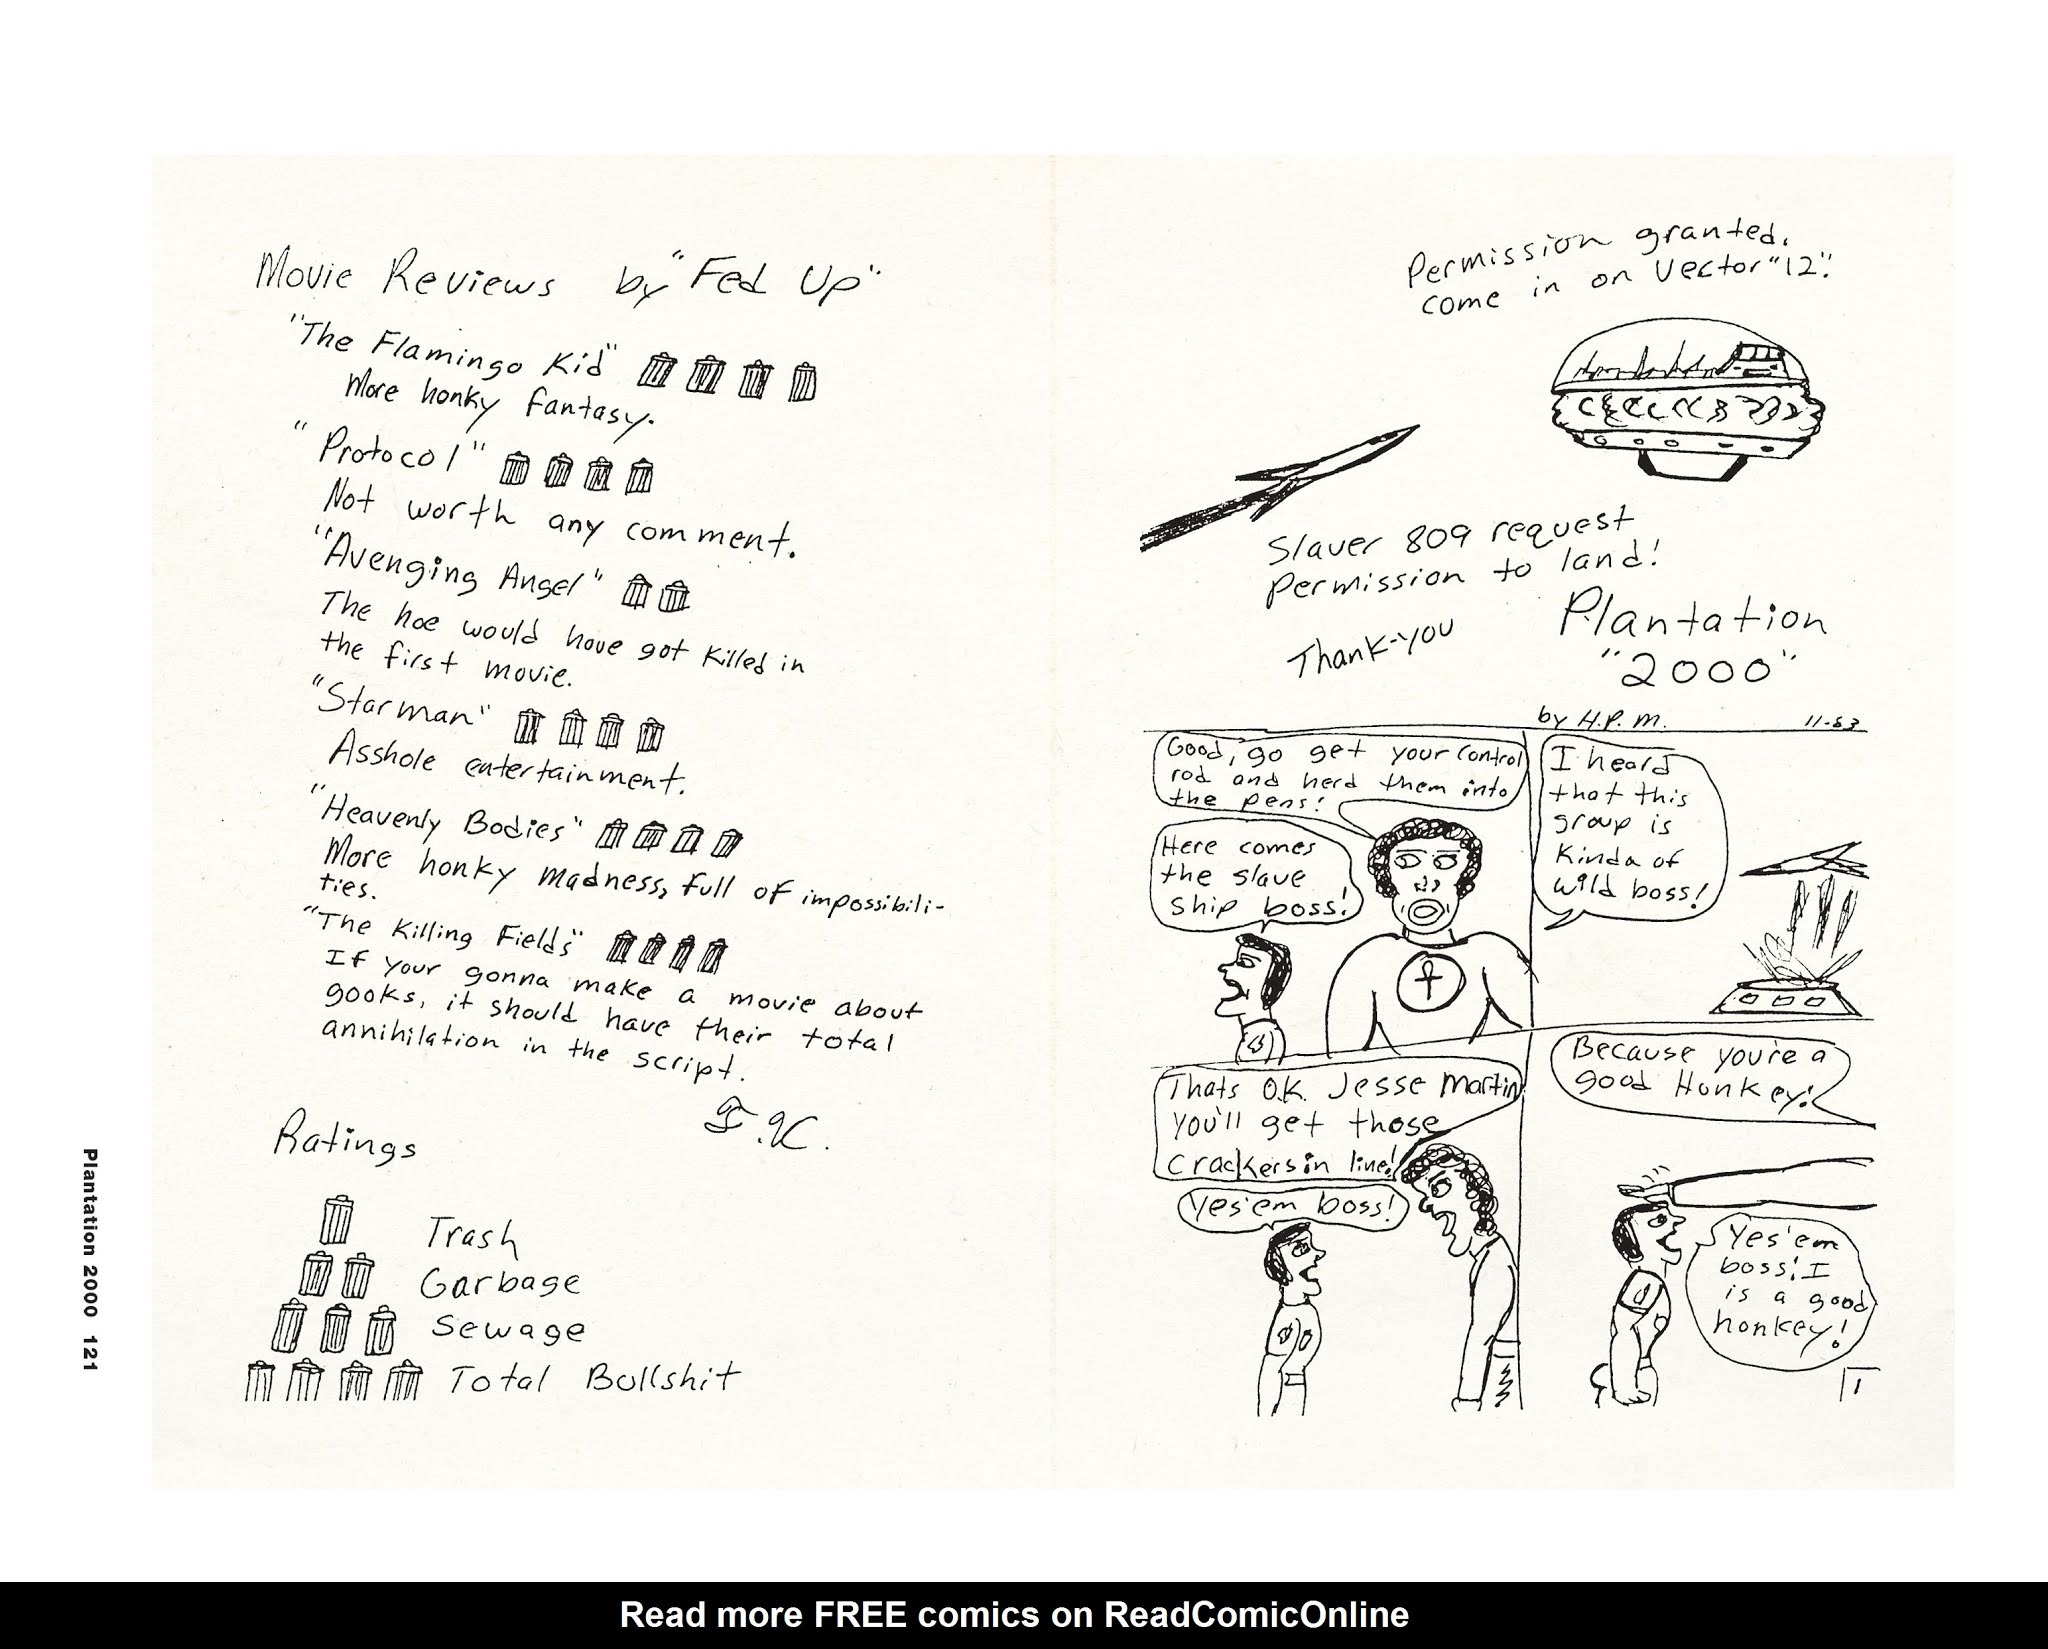 Movie Reviews by "Fed Up"
"The Flamingo Kid"
More honky fantasy.
"Protocol"
Not worth any comment.
"Avenging Angel"
The hoe would have got killed in
the first movie.
"Starman"
Asshole entertainment.
"Heavenly Bodies"
More honky madness, full of impossibili-
ties.
"The Killing Fields"
If your gonna make a movie about
gooks, it should have their total
annihilation in the script.
Ratings
Trash
Garbage
Sewage
Total Bullshit
Plantation 2000 121
Permission granted.
come in on Vector "12".
Slaver 809 request
permission to land!
Thank-you
Plantation
"2000"
by H.P.M. 11-83
Good, go get your control
rod and herd them into
the pens!
Here comes
the slave
ship boss!
I heard
that this
group is
kinda of
wild boss!
Thats O.K. Jesse Martin
you'll get those
crackers in line!
Yes'em boss!
Because you're a
good Honkey!
Yes'em
boss! I
is a good
honkey!
1
Read more FREE comics on ReadComicOnline